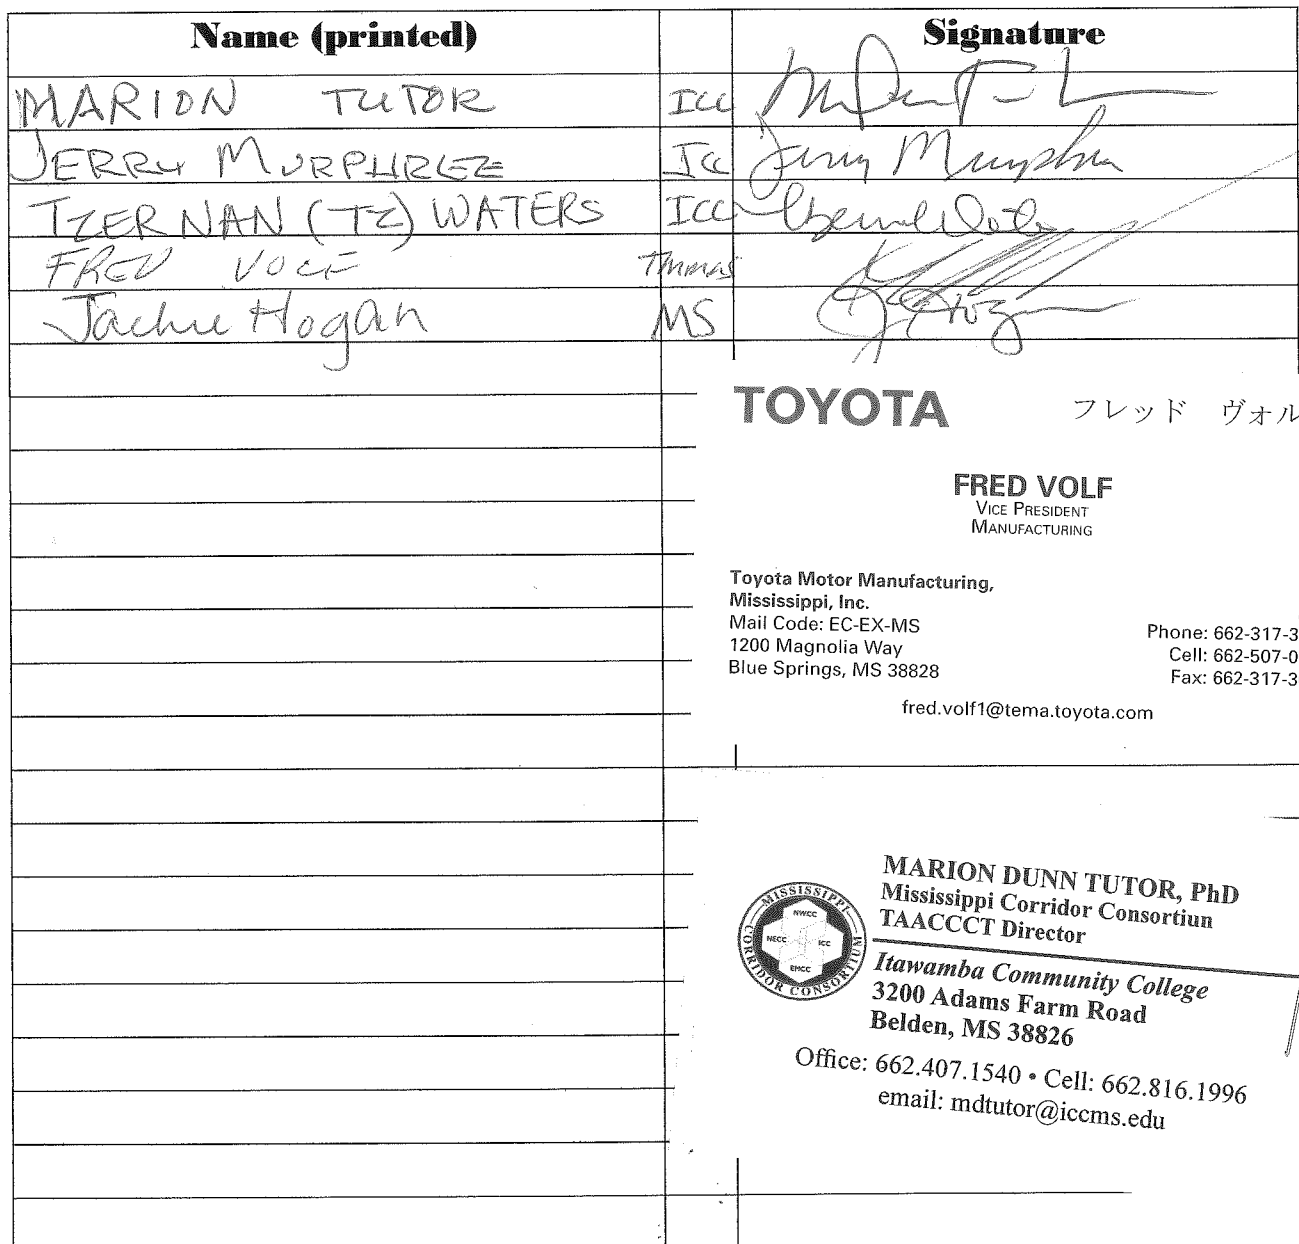 Name (printed) Signature
MARION TUTOR ICC
JERRY MURPHREE ICC Jerry Murphree
TZER NAN (TZ) WATERS ICC
FRED VOLF
Jackie Hogan MS J Hogan
TOYOTA フレッド ヴォル
FRED VOLF
VICE PRESIDENT
MANUFACTURING
Toyota Motor Manufacturing,
Mississippi, Inc.
Mail Code: EC-EX-MS
1200 Magnolia Way
Blue Springs, MS 38828
Phone: 662-317-3
Cell: 662-507-0
Fax: 662-317-3
fred.volf1@tema.toyota.com
MISSISSIPPI
CORRIDOR CONSORTIUM
NWCC
NECC ICC
EMCC
MARION DUNN TUTOR, PhD
Mississippi Corridor Consortiun
TAACCCT Director
Itawamba Community College
3200 Adams Farm Road
Belden, MS 38826
Office: 662.407.1540 • Cell: 662.816.1996
email: mdtutor@iccms.edu